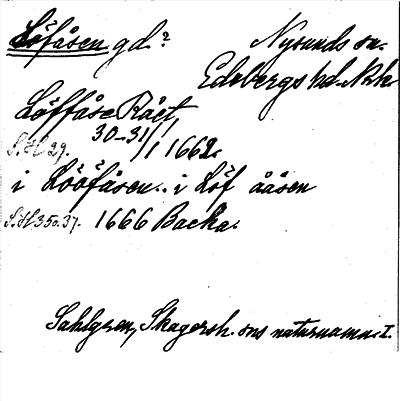 Löfåsen gd.? Nysunds sn.
Edsbergs hd. Nrk.
Löffåse Rået,
S.H. 29. 30-31/1 1662.
i Lööfåsen.. i Löf ååsen
S.H 350.37. 1666 Backa.
Sahlgren, Skagersh. sns naturnamn. I.